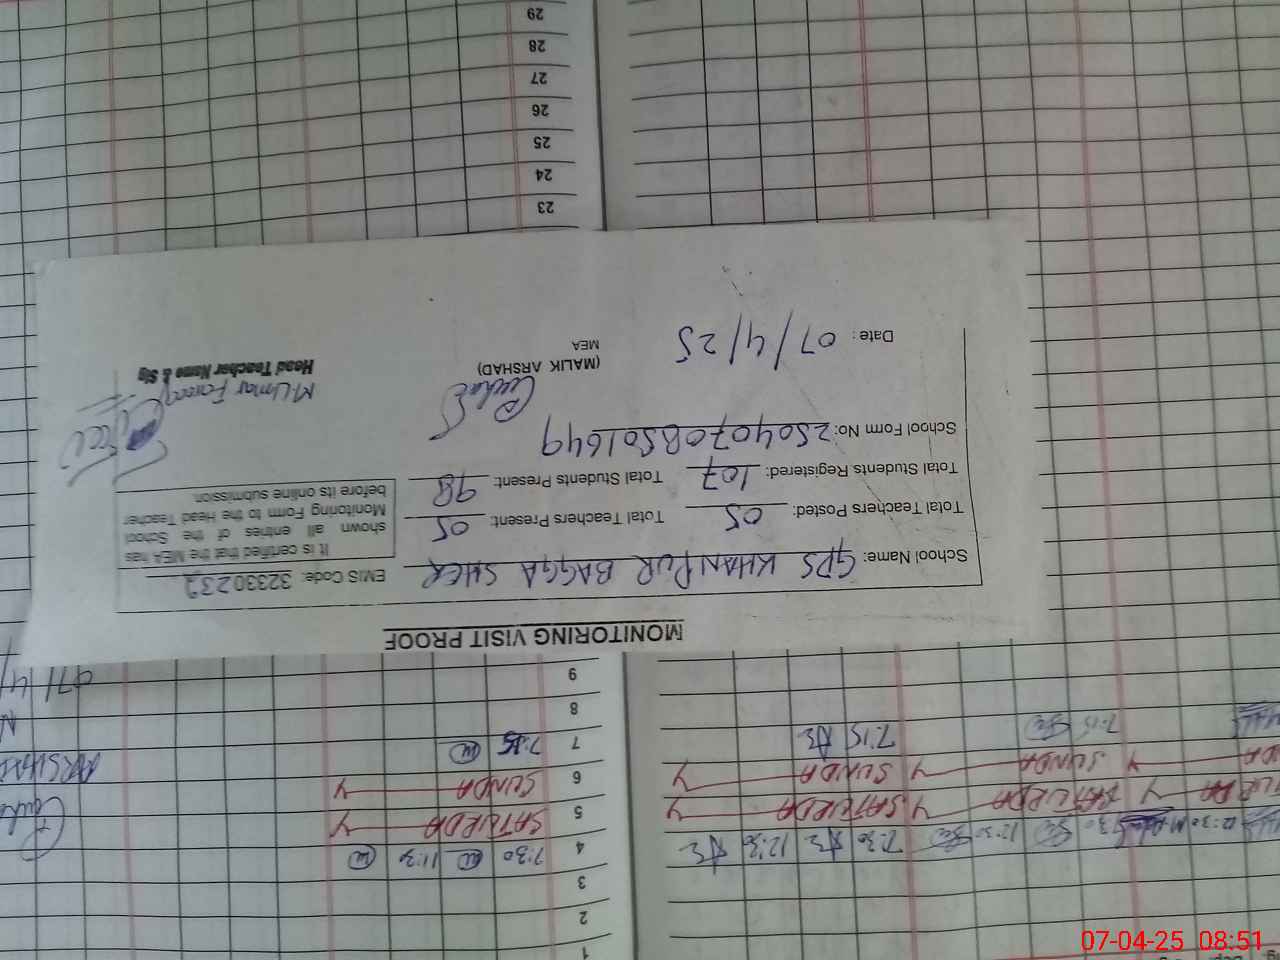 MONITORING VISIT PROOF
School Name: GPS KHANPUR BAGGA SHER EMIS Code: 32330232
Total Teachers Posted: 05 Total Teachers Present: 05
Total Students Registered: 107 Total Students Present: 98
School Form No: 2504070BS01649
It is certified that the MEA has
shown all entries of the School
Monitoring Form to the Head Teacher
before its online submission.
Date: 07/4/25
(MALIK ARSHAD)
MEA
M Umar Farooq
Head Teacher Name & Sig
1
2
3
4 7:30 11:30
5 SATURDAY
6 SUNDAY
7 7:15
8
9
23
24
25
26
27
28
29
7:30 12:30
SATURDAY SATURDAY
SUNDAY SUNDAY
7:15 7:15
ARSHAD
07/4/
07-04-25 08:51